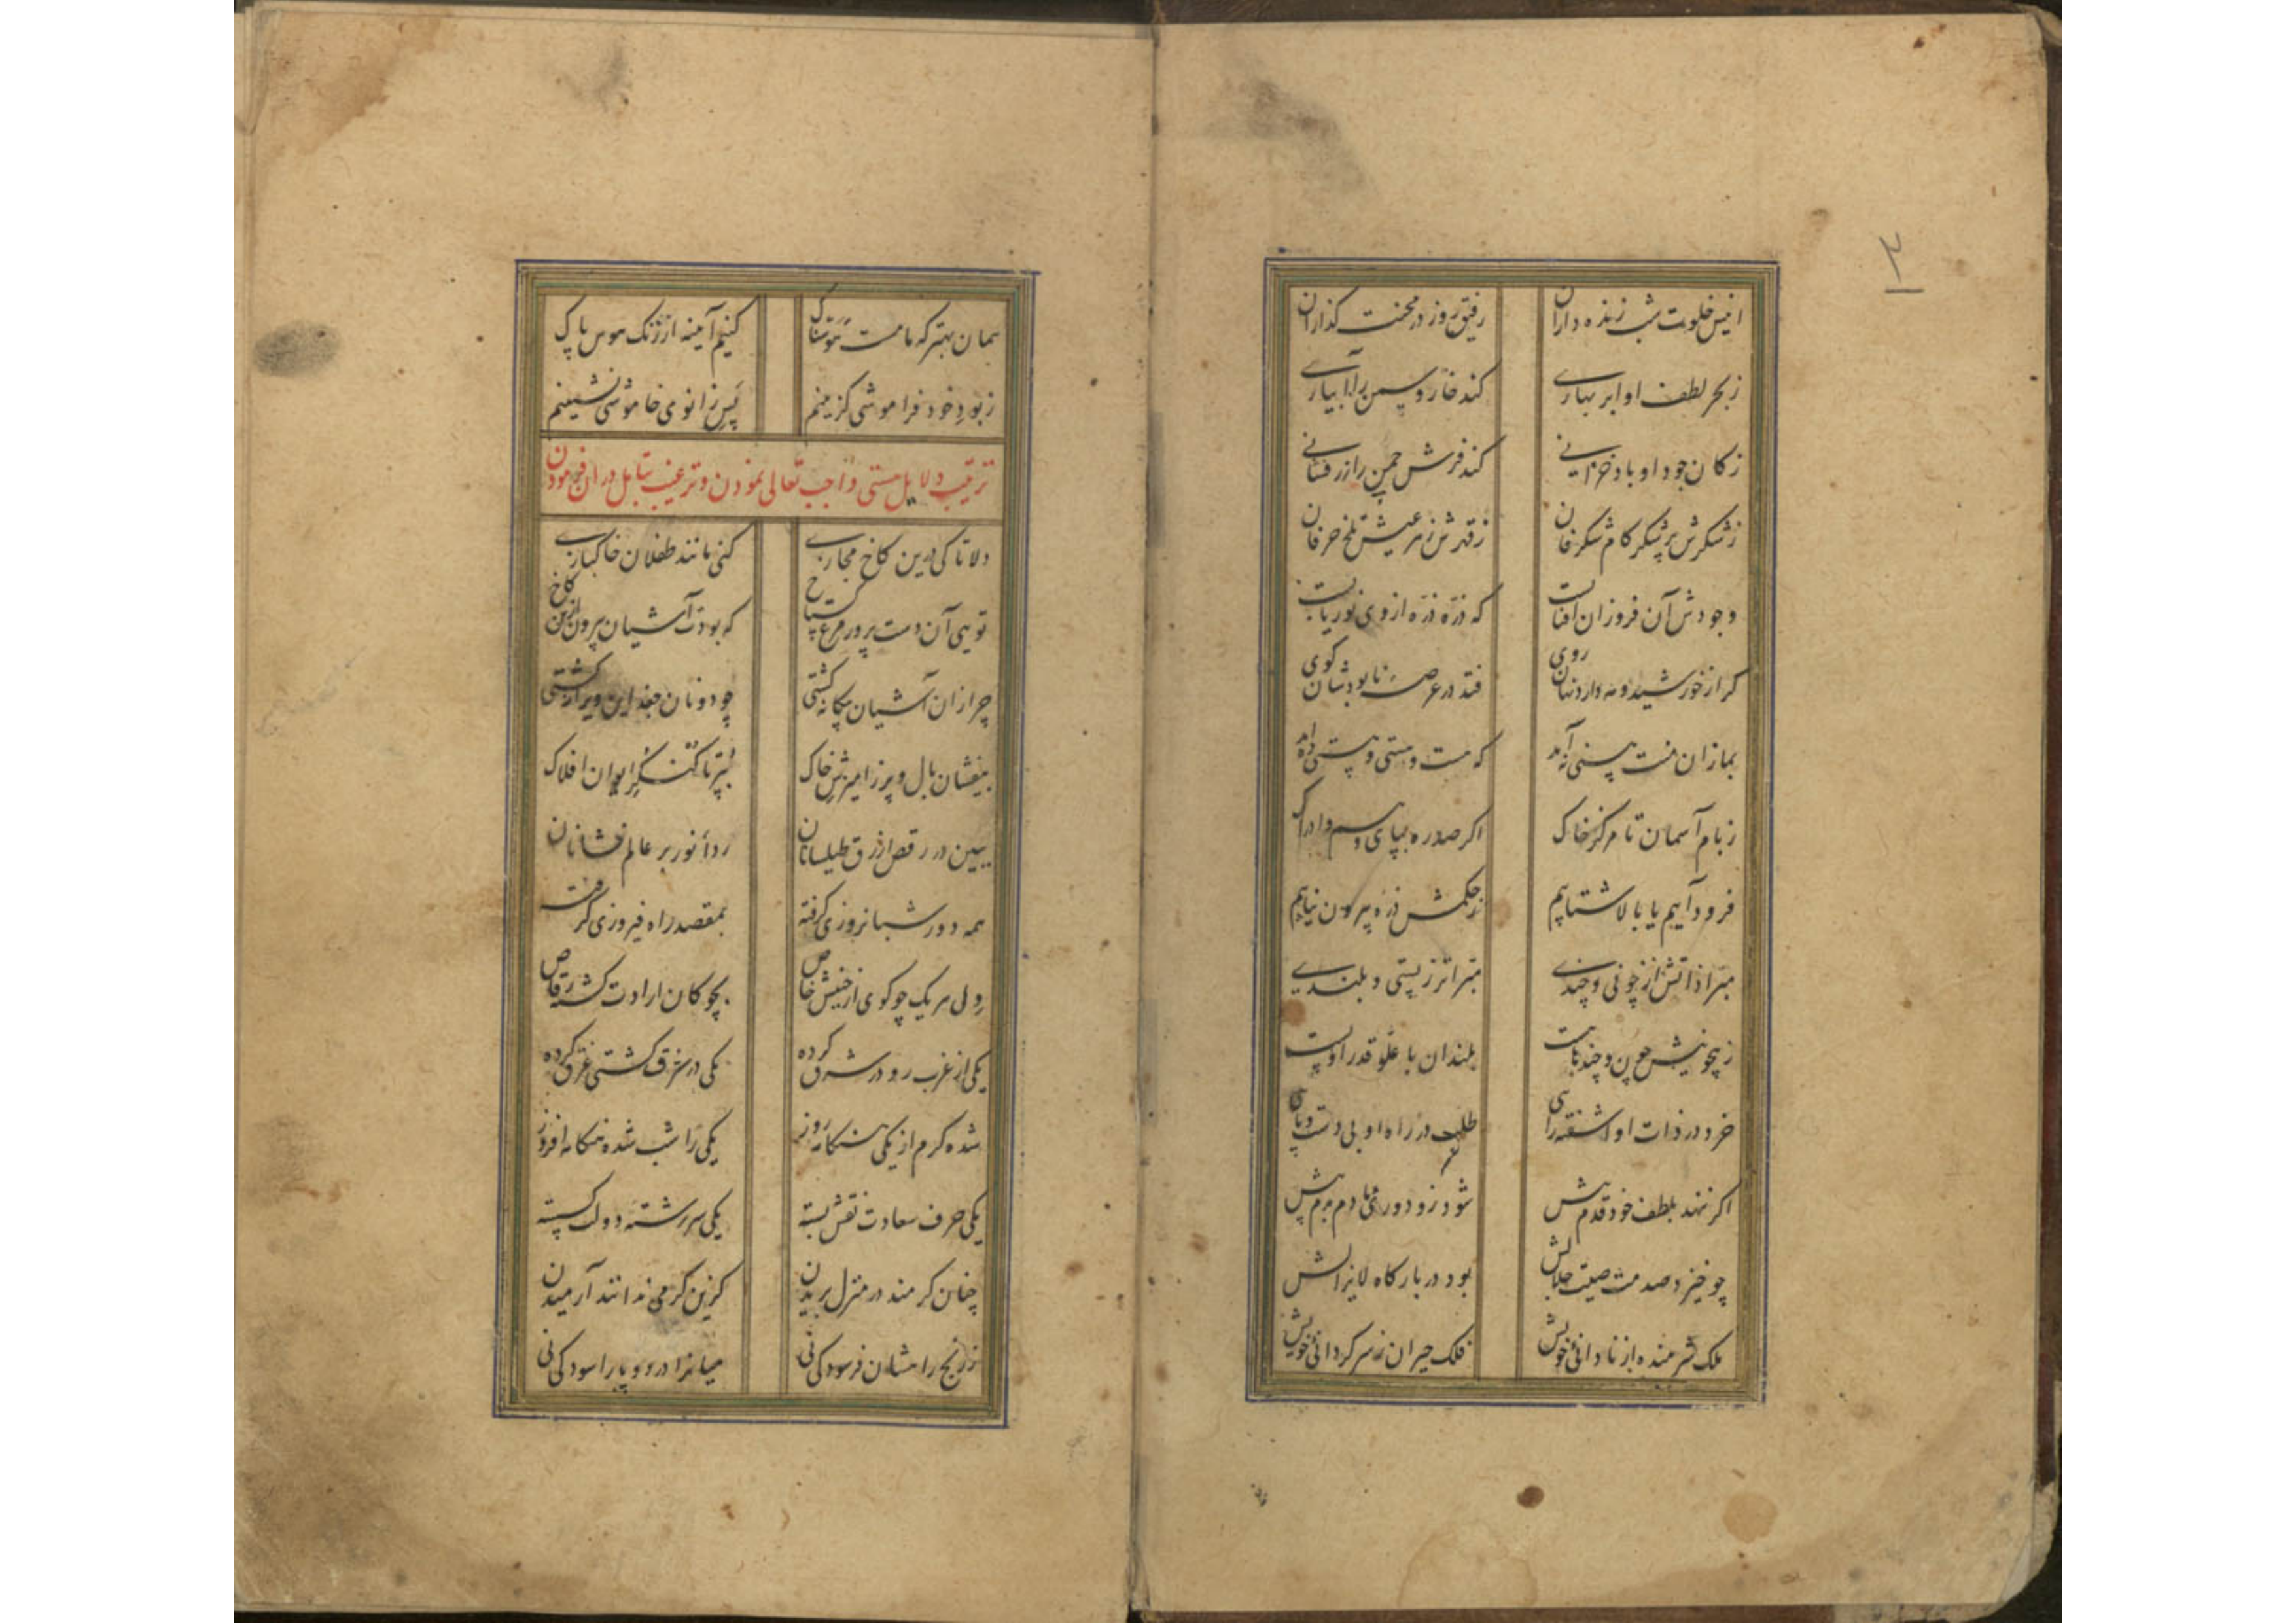 ۳
انیس خلوت شب زنده داران رفیق روز در محنت گذاران
ز بحر لطف او ابر بهاری کند خار و سمن را آبیاری
ز کان جود او باد خزانی کند فرش چمن را زر فشانی
ز شکرش پر شکر کام شکرفان ز قهرش زهر عیش تلخ حرفان
وجودش آن فروزان آفتابست که ذره ذره از وی نور یابست
گر از خورشید و مه دارد نهان روی فتد در عرصهٔ نابودشان گوی
بما زان منت هستی نه آمد که هست و هستی و هستی ده آمد
ز بام آسمان تا مرکز خاک اگر صد ره بپای وهم و ادراک
فرود آییم یا بالا شتابیم ز حکمش ذره بیرون نیابیم
مبرا ذاتش از چونی و چندی مبرا تر ز پستی و بلندی
ز بیچونیش چون و چند پاهست بلندان با علو قدر او پست
خرد در ذات او آشفته رای طلب در راه او بی دست و پای
اگر ننهد بلطف خود قدم پیش شود زو دوری ما دم بدم بیش
چو خیزد صدمت صیت جلالش بود در بارگاه لایزالش
ملک شرمنده از نادانی خویش فلک حیران ز سرگردانی خویش
همان بهتر که ما مشت هوسناک کنیم آیینه از زنگ هوس پاک
ز بود خود فراموشی گزینیم پس زانوی خاموشی نشینیم
ترتیب دلایل هستی واجب تعالی نمودن و ترغیب بتامل در ان فرمودن
دلا تا کی درین کاخ مجازی کنی مانند طفلان خاکبازی
تویی آن دست پرور مرغ گستاخ که بودت آشیان بیرون ازین کاخ
چرا زان آشیان بیگانه گشتی چو دونان جغد این ویرانه گشتی
بیفشان بال و پر ز آمیزش خاک بپر تا کنگر ایوان افلاک
ببین در رقص ازرق طیلسانان ردا نور بر عالم فشانان
همه دور شبانروزی گرفته بمقصد راه فیروزی گرفته
دل هر یک چو گوی از جنبش خاص بچوگان ارادت گشته رقاص
یکی از غرب رو در شرق کرده یکی در شرق کشتی غرق کرده
شده گرم از یکی هنگامه روز یکی را شب شده هنگامه افروز
یکی حرف سعادت نقش بسته یکی سررشته دولت گسسته
چنان گرمند در منزل بریدن کزین گرمی ندانند آرمیدن
ز رنج راهشان فرسودگی نی میانرا درد و پا را سودگی نی